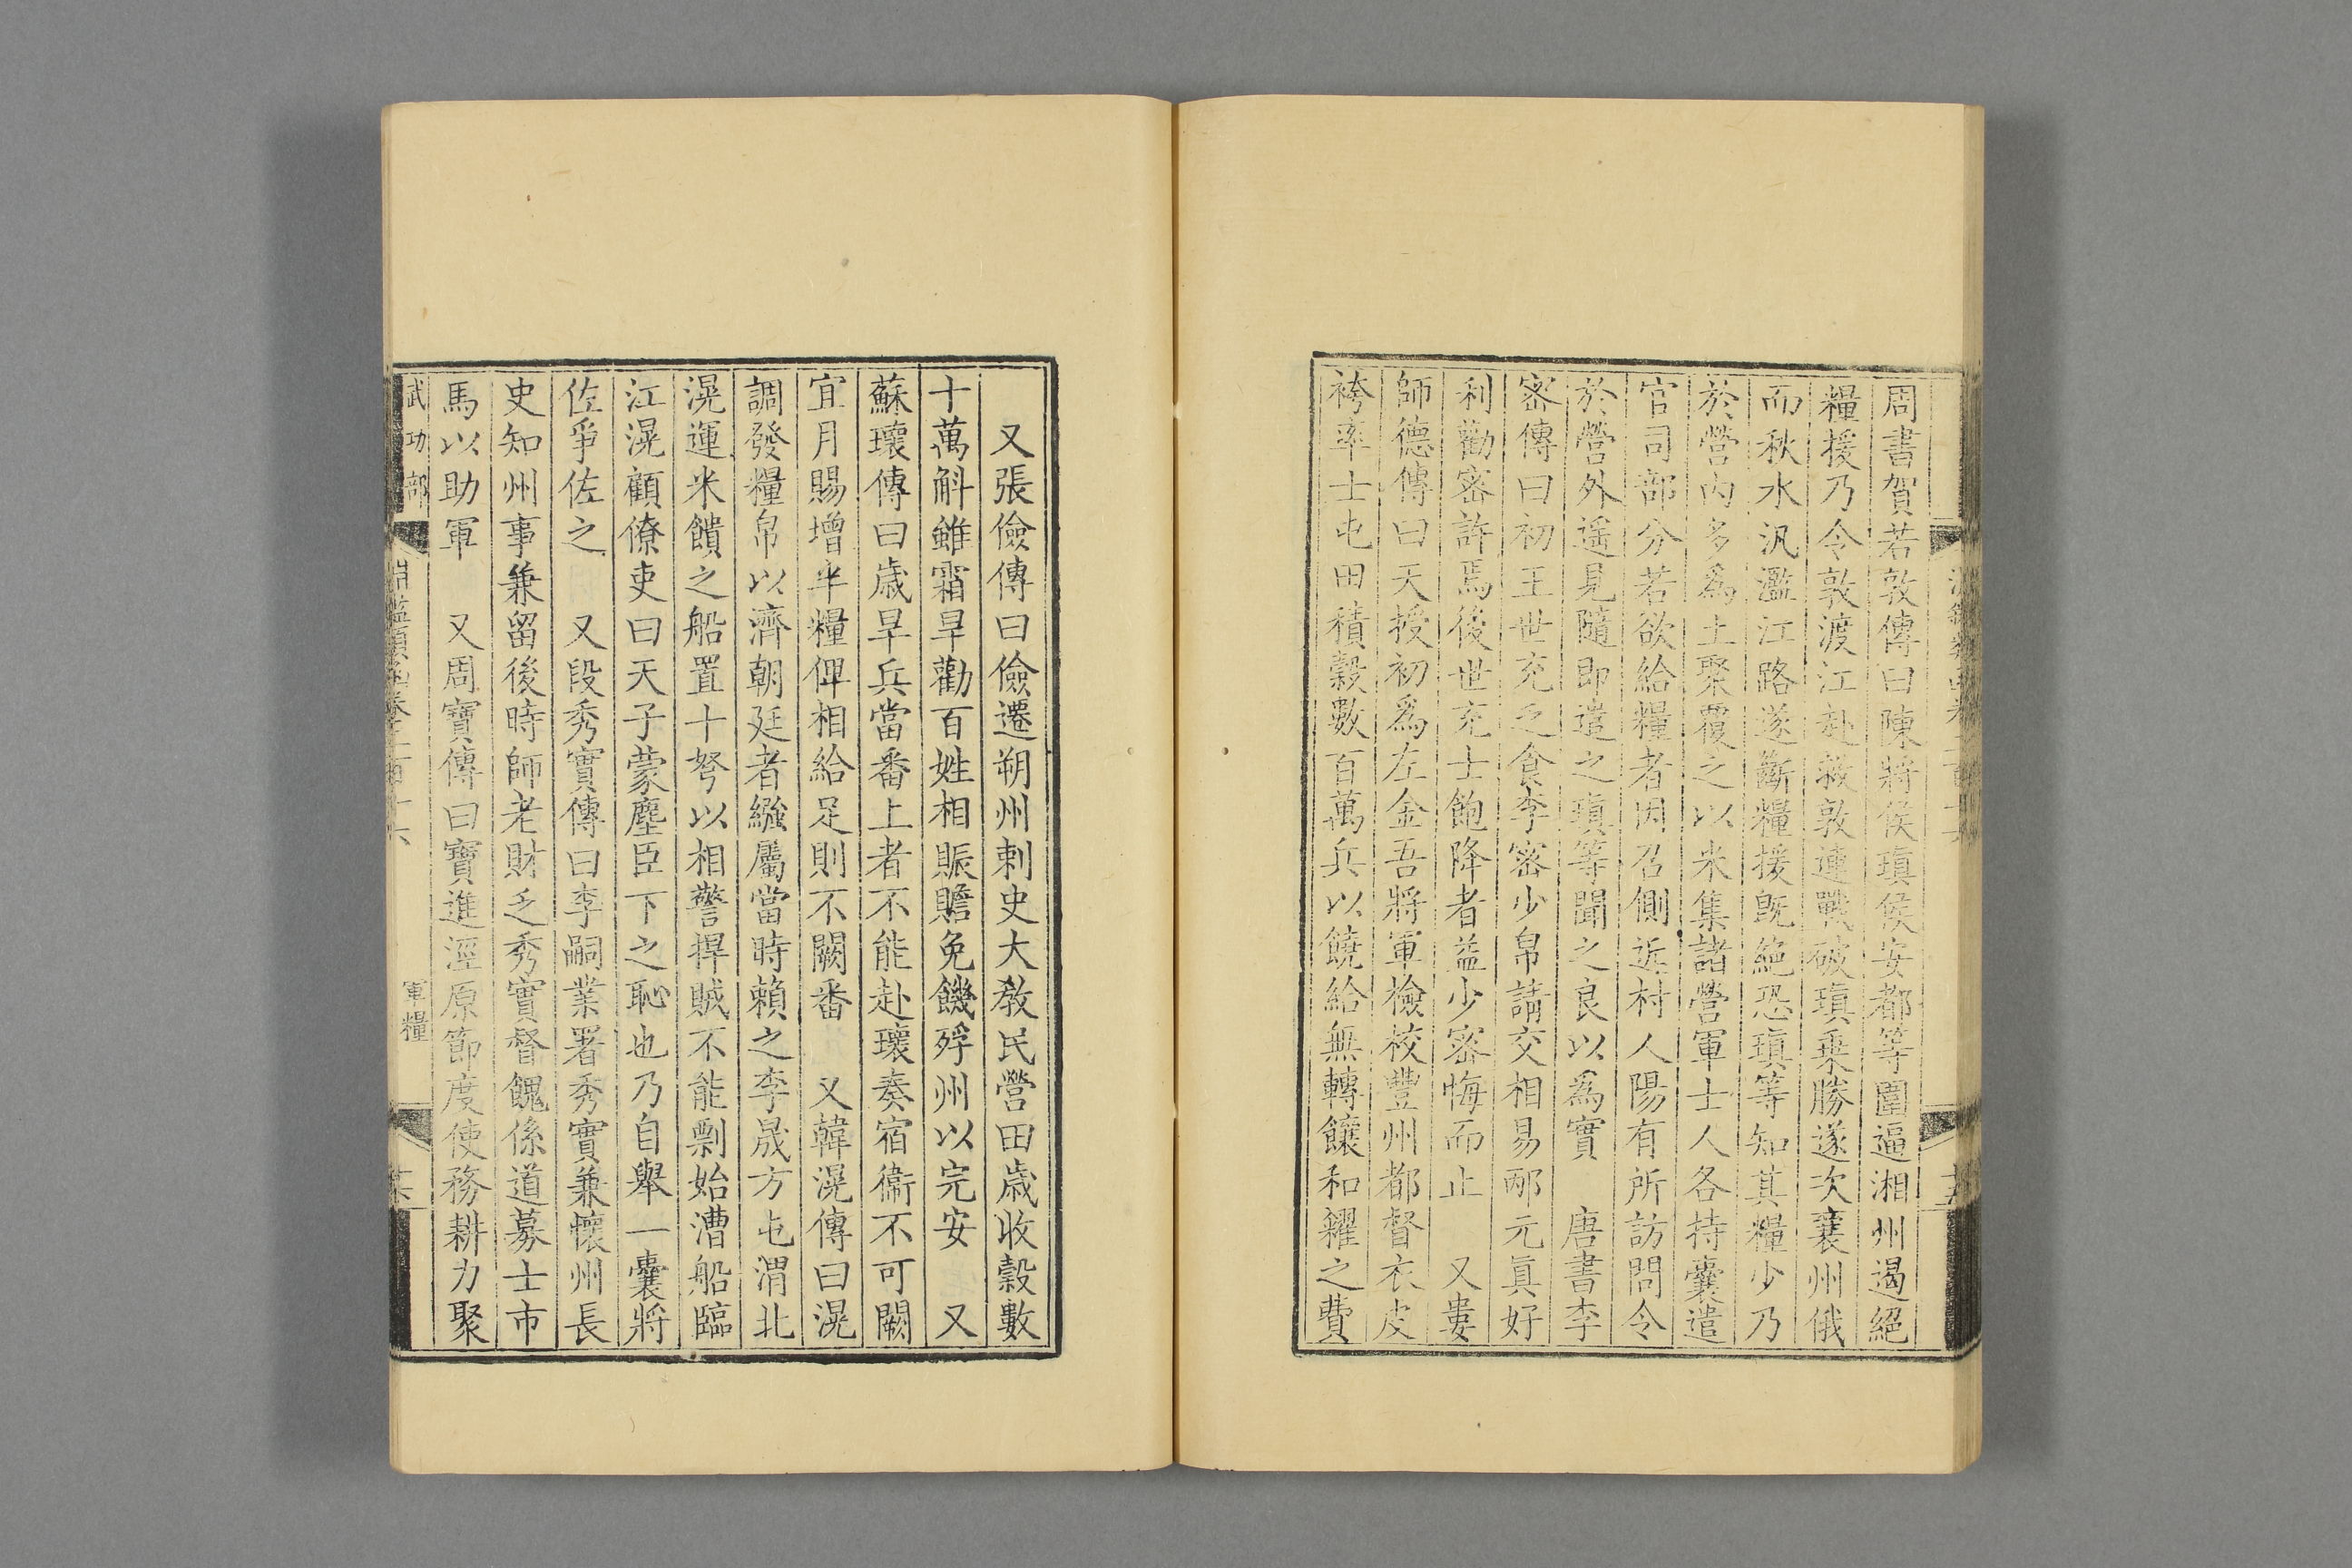 周書賀若敦傳曰陳將侯瑱侯安都等圍逼湘州遏絕
糧援乃令敦渡江赴救敦連戰破瑱乗勝遂次襄州俄
而秋水汎濫江路遂斷糧援旣絕恐瑱等知其糧少乃
於營內多爲土聚覆之以米集諸營軍士人各持囊遣
官司部分若欲給糧者因召側近村人陽有所訪問令
於營外遥見隨即遣之瑱等聞之良以爲實　唐書李
密傳曰初王世充乏食李密少帛請交相易邴元眞好
利勸密許焉後世充士飽降者益少密悔而止　又婁
師德傳曰天授初爲左金吾將軍檢校豐州都督衣皮
袴率士屯田積穀數百萬兵以饒給無轉饟和糴之費
又張儉傳曰儉遷朔州刺史大敎民營田歲收穀數
十萬斛雖霜旱勸百姓相賑贍免饑殍州以完安　又
蘇瓌傳曰歲旱兵當番上者不能赴瓌奏宿衞不可闕
宜月賜增半糧俾相給足則不闕番　又韓滉傳曰滉
調發糧帛以濟朝廷者繈屬當時賴之李晟方屯渭北
滉運米饋之船置十弩以相警捍賊不能剽始漕船臨
江滉顧僚吏曰天子蒙塵臣下之恥也乃自舉一囊將
佐爭佐之　又段秀實傳曰李嗣業署秀實兼懷州長
史知州事兼留後時師老財乏秀實督餽係道募士市
馬以助軍　又周寶傳曰寶進涇原節度使務耕力聚
武功部　淵鑑類函卷二百十六　軍糧